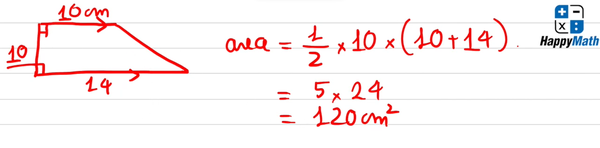 10cm
10
14
area = 1/2 × 10 × (10+14).
= 5 × 24
= 120cm²
HappyMath